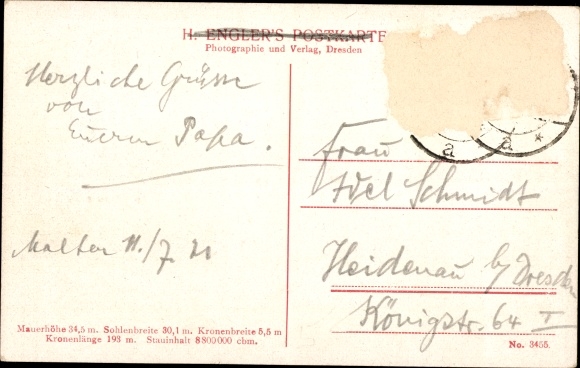 H. ENGLER'S POSTKARTE
Photographie und Verlag, Dresden
Herzliche Grüsse
von
Eurem Papa.
Malter 11./7. 21
Mauerhöhe 34,5 m. Sohlenbreite 30,1 m. Kronenbreite 5,5 m
Kronenlänge 193 m. Stauinhalt 8800000 cbm.
a * a *
Frau
Schmidt
Heidenau b/ Dresden
Königstr. 64 I
No. 3455.